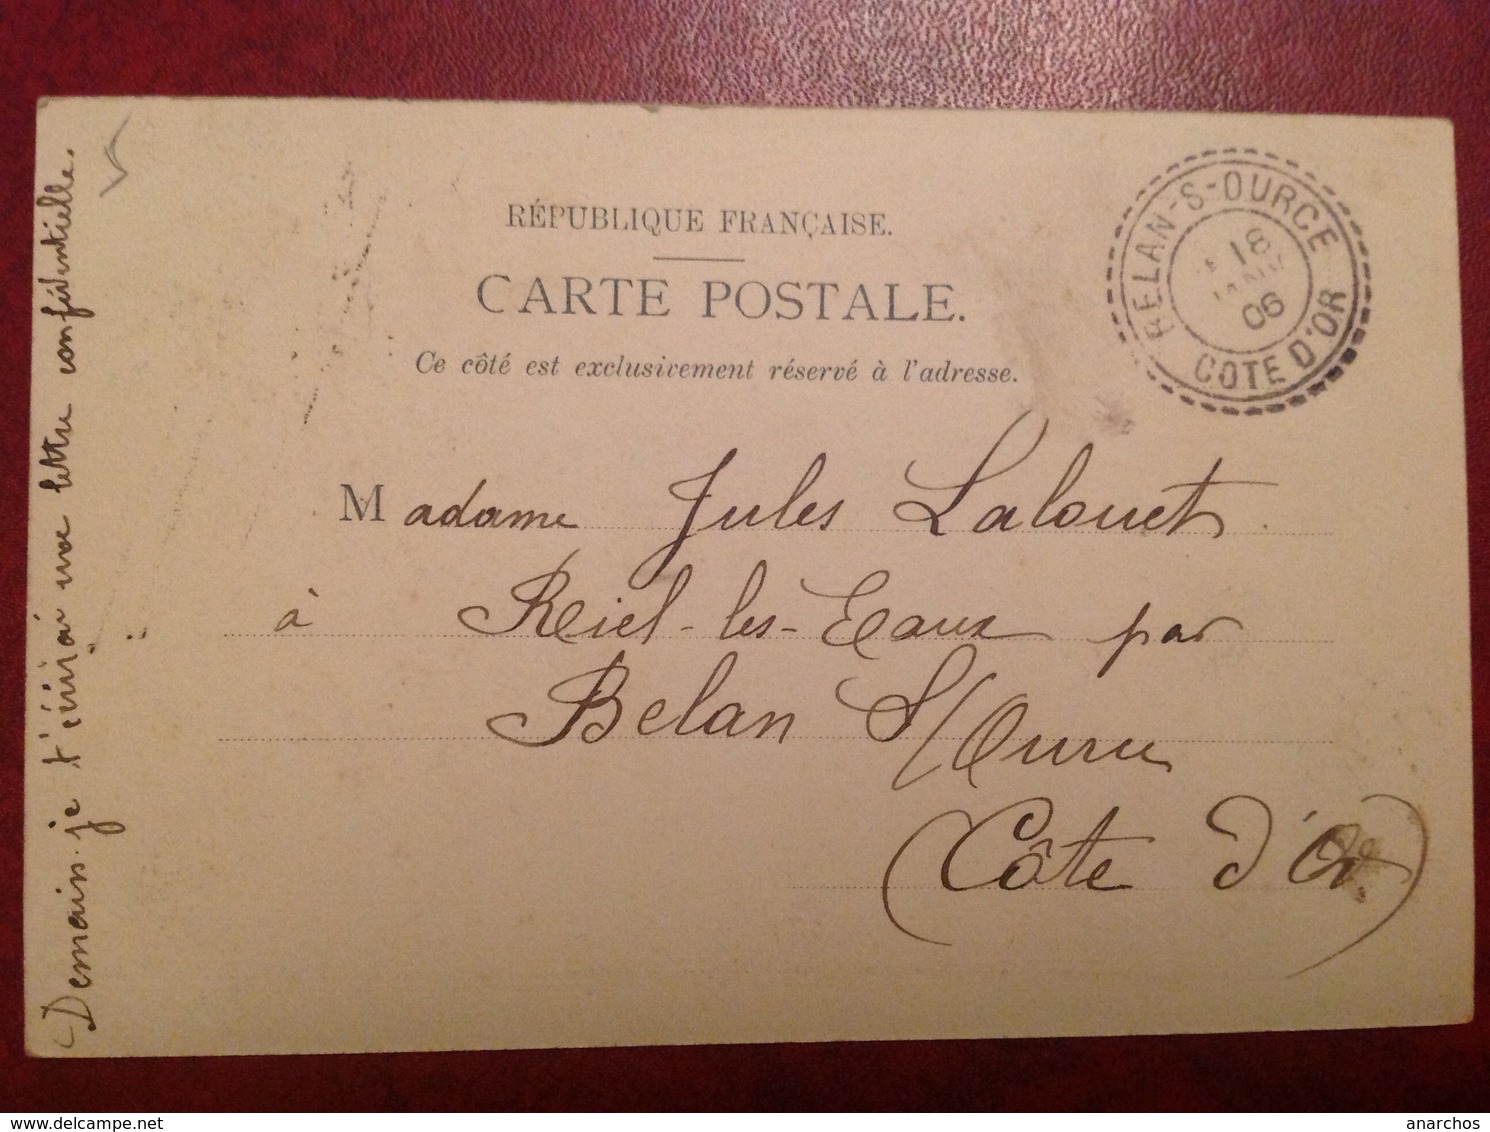 RÉPUBLIQUE FRANÇAISE.
CARTE POSTALE.
Ce côté est exclusivement réservé à l'adresse.
BELAN-S-OURCE
18
JANV
06
COTE D'OR
Madame Jules Lalouet
à Reiel-les-Eaux par
Belan S/Ource
(Côte d'Or)
Demain je t'écrirai une lettre confidentielle.
delcampe.net
anarchos